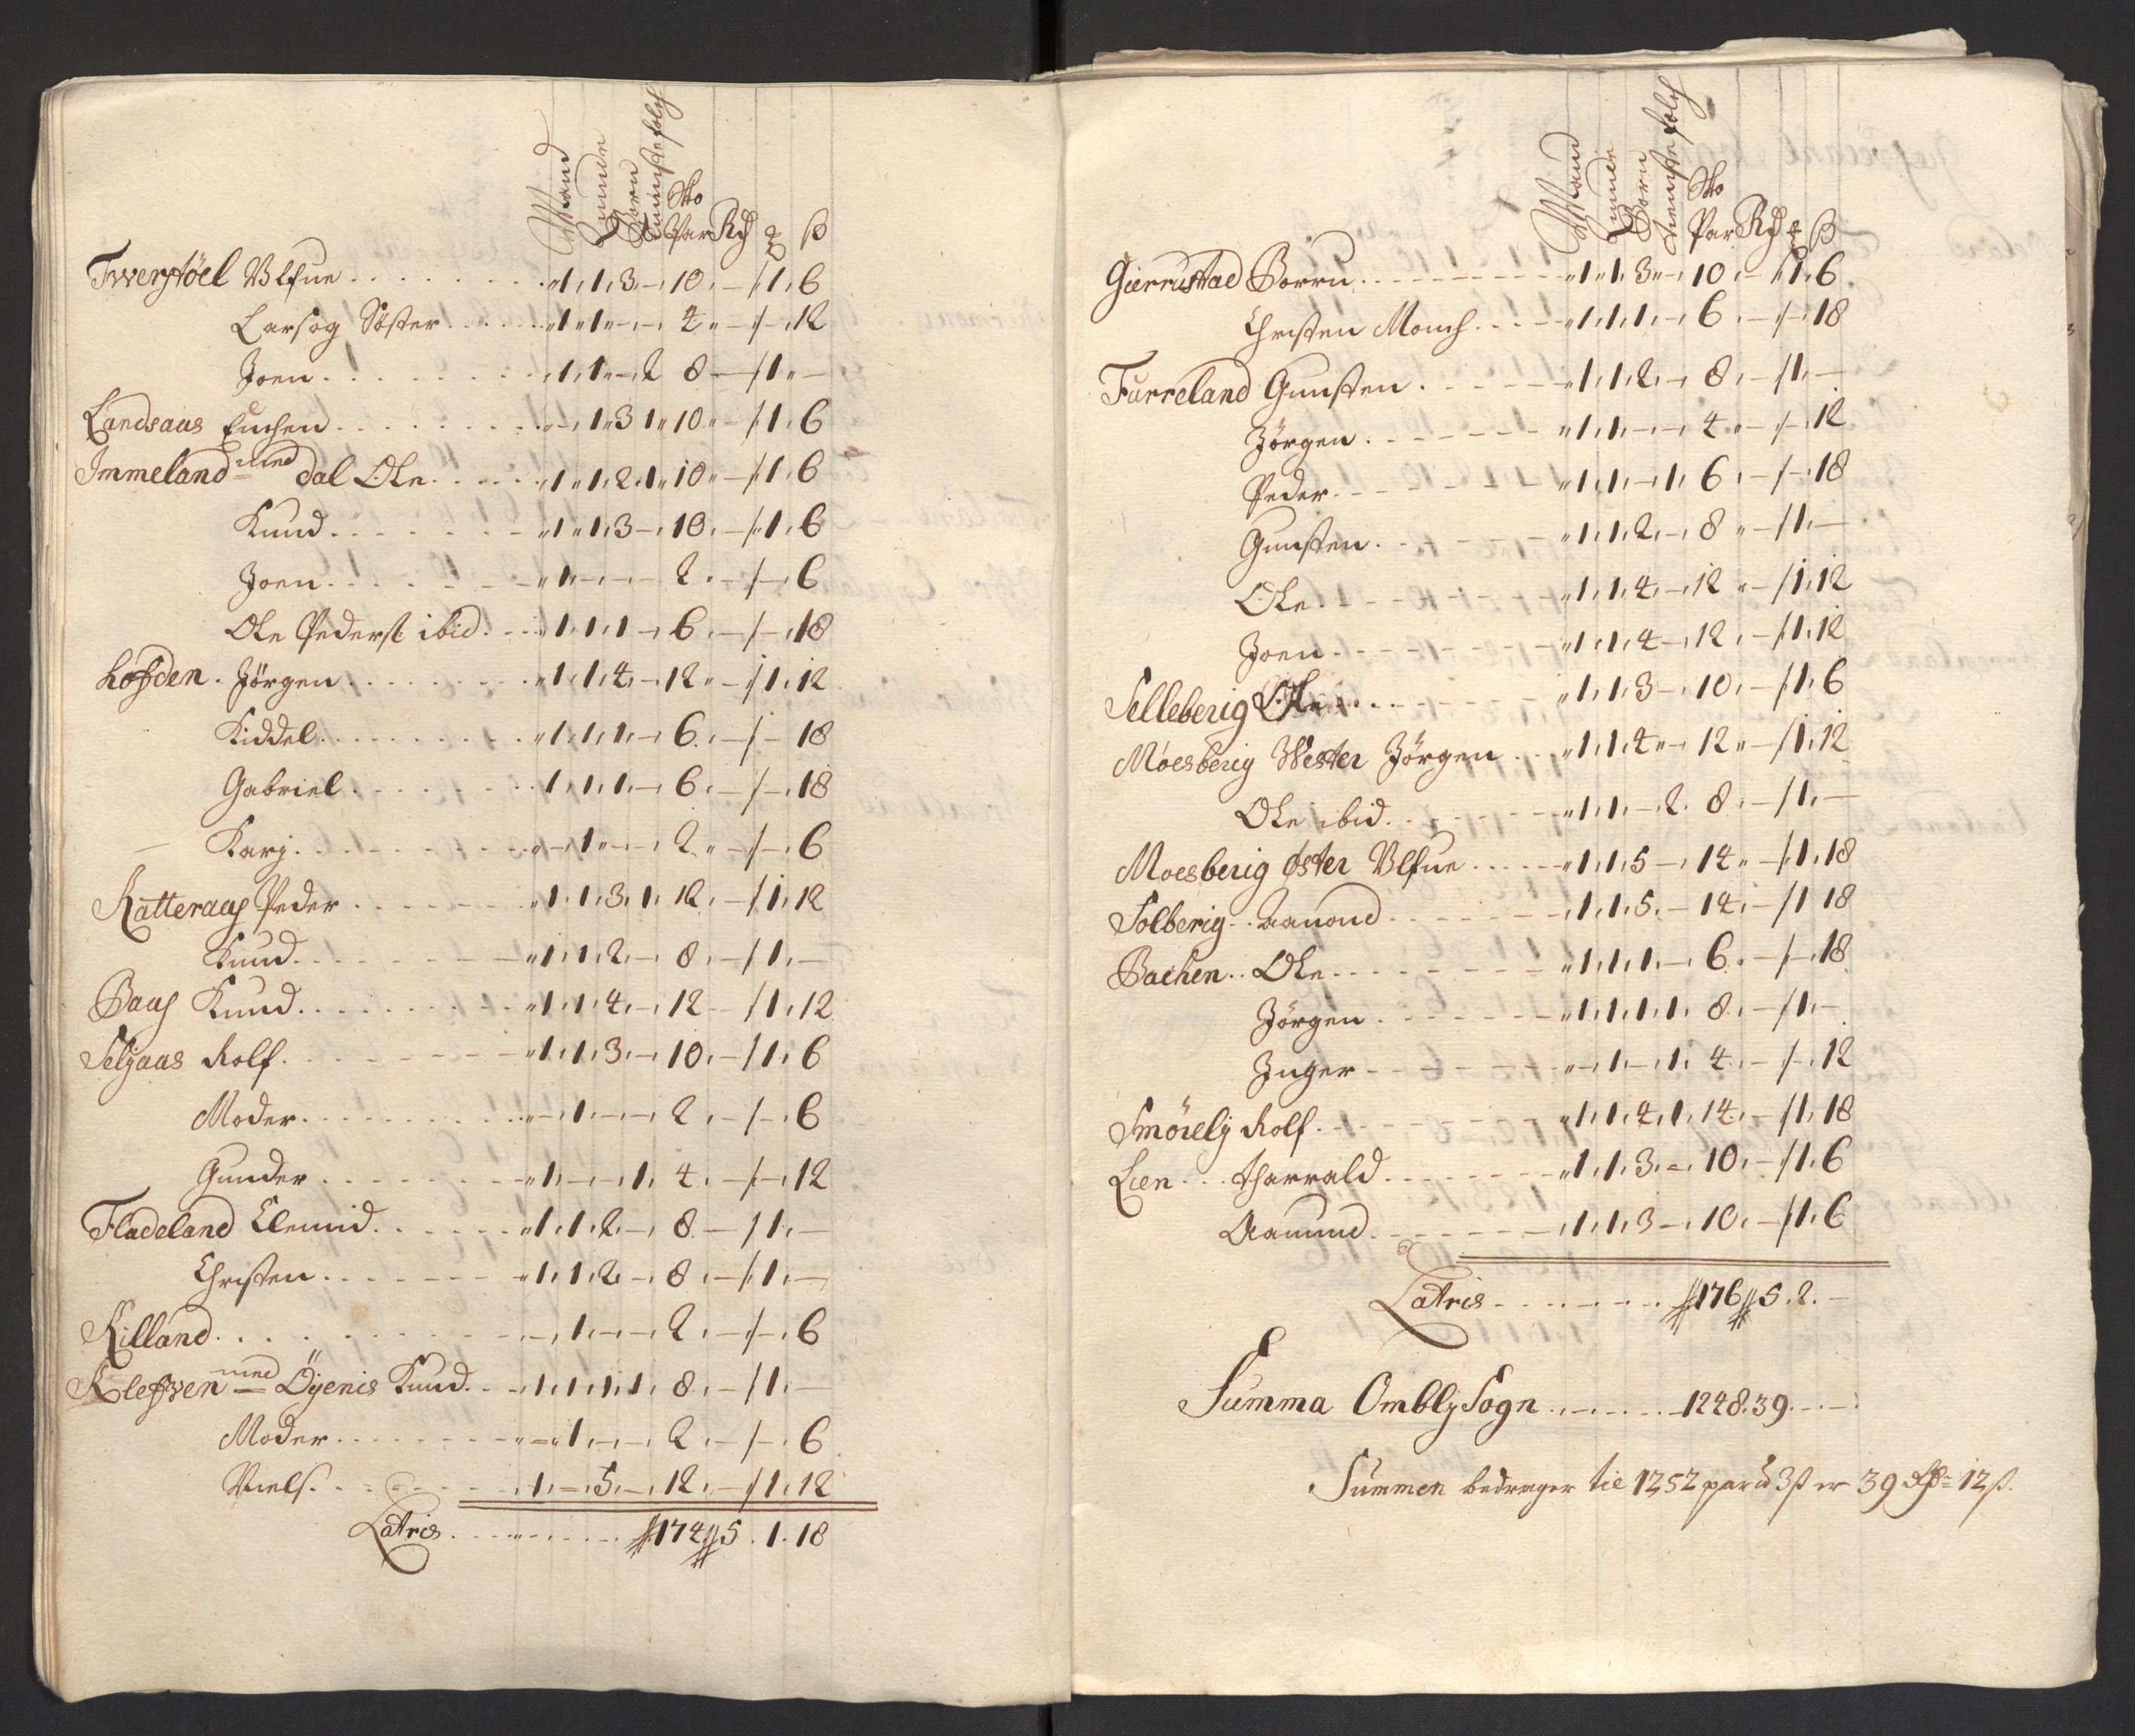 Mand Quinde Børn tienistefolch Sko Par Rdr ß
Tverstöel Ulfue . . . . 1. 1. 3. – 10. – / 1. 6
Lars og Söster . . . . 1. 1. – – 4. – / – 12
Joen . . . . 1. 1. – 2 8 – / 1. –
Landsaas . . . . – 1. 3 1. 10. – / 1. 6
Immeland med dal Ole . . . . 1. 1. 2. 1. 10. – / 1. 6
Knud . . . . 1. 1. 3 – 10. – / 1. 6
Joen . . . . 1. – – – 2. – / – 6
Ole Pederss: ibid . . . . 1. 1. 1 – 6. – / – 18
Lofsden . Jörgen . . . . 1. 1. 4. – 12. – / 1. 12
Kiddel . . . . 1. 1. 1. – 6. – / – 18
Gabriel . . . . 1. 1. 1. – 6. – / – 18
Karj . . . . – 1. – – 2. – / – 6
Katteraas Peder . . . . 1. 1. 3. 1. 12. – / 1. 12
Knud . . . . 1. 1. 2. – 8. – / 1. –
Baas Knud . . . . 1. 1. 4. – 12 – / 1. 12
Seljaas Rolf . . . . 1. 1. 3. – 10. – / 1. 6
Moder . . . . – 1. – – 2. – / – 6
Gunder . . . . 1. – – 1. 4. – / – 12
Fladeland Clemid . . . . 1. 1. 2 – 8. – / 1. –
Christen . . . . 1. 1. 2. – 8. – / 1. –
Killand . . . . – 1. – – 2. – / – 6
Klefven med Öÿenis Knud . . 1. 1. 1. 1. 8. – / 1. –
Moder . . . . – 1. – – 2. – / – 6
Niels . . . . 1. – 5. – 12. – / 1. 12
Latris . . . . 174 5 . 1 . 18
Mand Quinde Børn tienistefolch Sko Par Rdr ß
Gierrustad Borru . . . . 1. 1. 3. – 10. – / 1. 6
Christen Monch . . . . 1. 1. 1. – 6. – / – 18
Furreland Gunsten . . . . 1. 1. 2. – 8. – / 1. –
Jörgen . . . . 1. 1. – – 4. – / – 12
Peder . . . . 1. 1. – 1. 6. – / – 18
Gunsten . . . . 1. 1. 2. – 8. – / 1. –
Ole . . . . 1. 1. 4. – 12. – / 1. 12
Joen . . . . 1. 1. 4 – 12. – / 1. 12
Selleberig Ole . . . . 1. 1. 3 – 10. – / 1. 6
Moesberig Wester Jörgen . . 1. 1. 4. – 12. – / 1. 12
Ole ibid . . . . 1. 1. – 2. 8. – / 1. –
Moesberig öster Ulfue . . . . 1. 1. 5 – 14. – / 1. 18
Solberig . . Aanond . . . . 1. 1. 5. – 14. – / 1 18
Bachen . . Ole . . . . 1. 1. 1. – 6. – / – 18
Jörgen . . . . 1. 1. 1. 1. 8. – / 1. –
Inger . . . . – 1. – 1. 4. – / – 12
Smörelj Rolf . . . . 1. 1. 4. 1. 14. – / 1. 18
Lien . . . Tharrald . . . . 1. 1. 3. – 10. – / 1. 6
Aamund . . . . 1. 1. 3 – 10. – / 1. 6
Latris . . . . 176 5. 2. –
Summa Omblj Sogn . . . . 1248. 39. – –
Summen bedrager til 1252 par à 3ß er 39 Rdr 12ß.